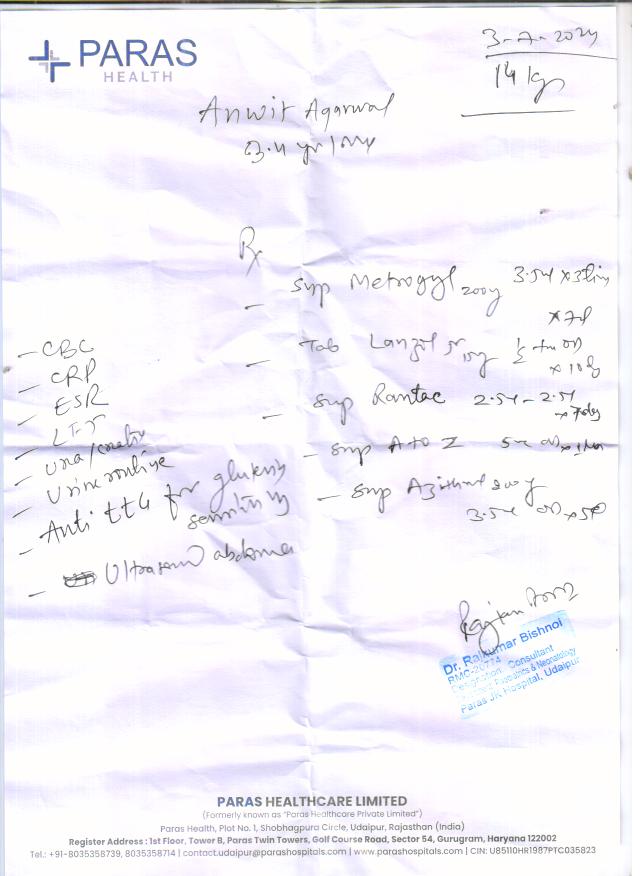 PARAS
HEALTH
3-7-2024
14 kg
Anwit Agarwal
Rx
Syp Metrogyl 200
3.5ml x 3
x 7d
Tab Lanzol Jr 15mg
x 10
Syp Rantac 2.5ml - 2.5ml
x 7day
Syp A to Z 5ml OD x
Syp Azithral 200
3.5ml OD x 5D
- CBC
- CRP
- ESR
- LFT
- urea/creatin
- Urine routine
- Anti ttG for gluten
sensitivity
- Ultrasound abdomen
Dr. Rajkumar Bishnoi
RMC-20774
Designation Consultant
Paediatrics & Neonatology
Paras JK Hospital, Udaipur
PARAS HEALTHCARE LIMITED
(Formerly known as "Paras Healthcare Private Limited")
Paras Health, Plot No. 1, Shobhagpura Circle, Udaipur, Rajasthan (India)
Register Address : 1st Floor, Tower B, Paras Twin Towers, Golf Course Road, Sector 54, Gurugram, Haryana 122002
Tel.: +91-8035358739, 8035358714 | contact.udaipur@parashospitals.com | www.parashospitals.com | CIN: U85110HR1987PTC035823